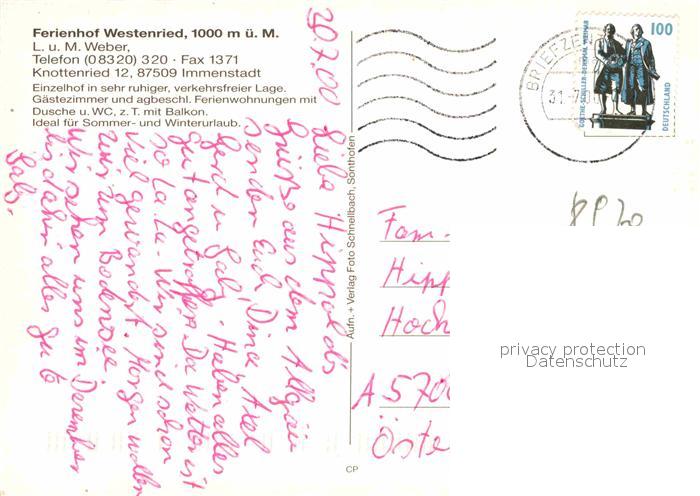 Ferienhof Westenried, 1000 m ü. M.
L. u. M. Weber,
Telefon (08320) 320 · Fax 1371
Knottenried 12, 87509 Immenstadt
Einzelhof in sehr ruhiger, verkehrsfreier Lage.
Gästezimmer und agbeschl. Ferienwohnungen mit
Dusche u. WC, z. T. mit Balkon.
Ideal für Sommer- und Winterurlaub.
30.7.00
Liebe Hippold's
Grüße aus dem Allgäu
senden Euch, Dina Axel
Gerd u. Gab. Haben alles
gut angetroffen. Das Wetter ist
so La. La. Wir sind schon
viel gewandert. Morgen wollen
wir zum Bodensee
Wir sehen uns im Dezember
bis dahin alles Gute
Gab.
Aufn. + Verlag Foto Schnellbach, Sonthofen
CP
BRIEFZEN
31.
GOETHE-SCHILLER-DENKMAL WEIMAR
100
DEUTSCHLAND
Fam.
Hipp
Hoch
A 570
Öste
privacy protection
Datenschutz